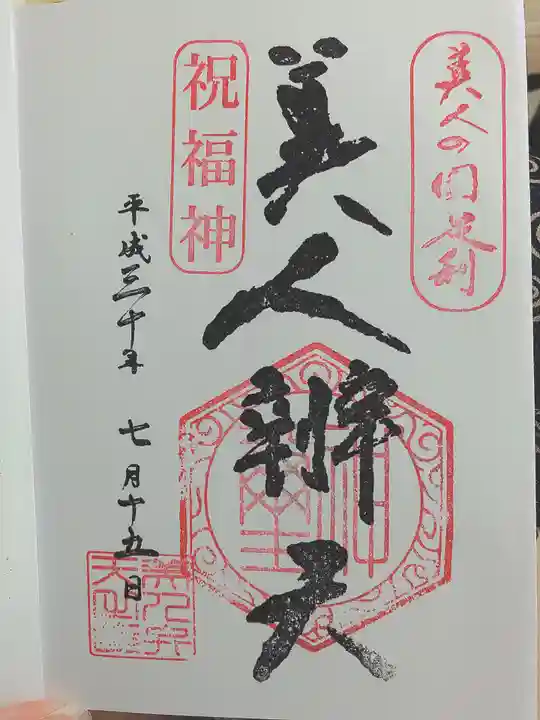 美人の国足利
美人辨天
祝福神
平成三十年 七月十五日